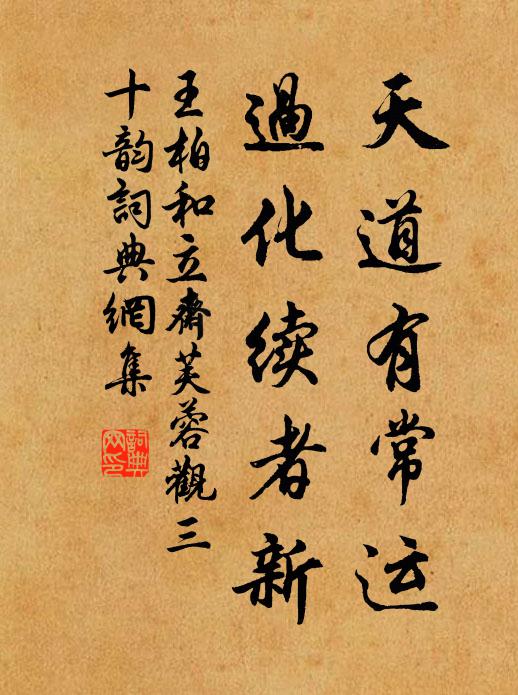 天道有常运
過化续者新
王柏和立齋芙蓉觀三
十韵詞典網集
詞典網印